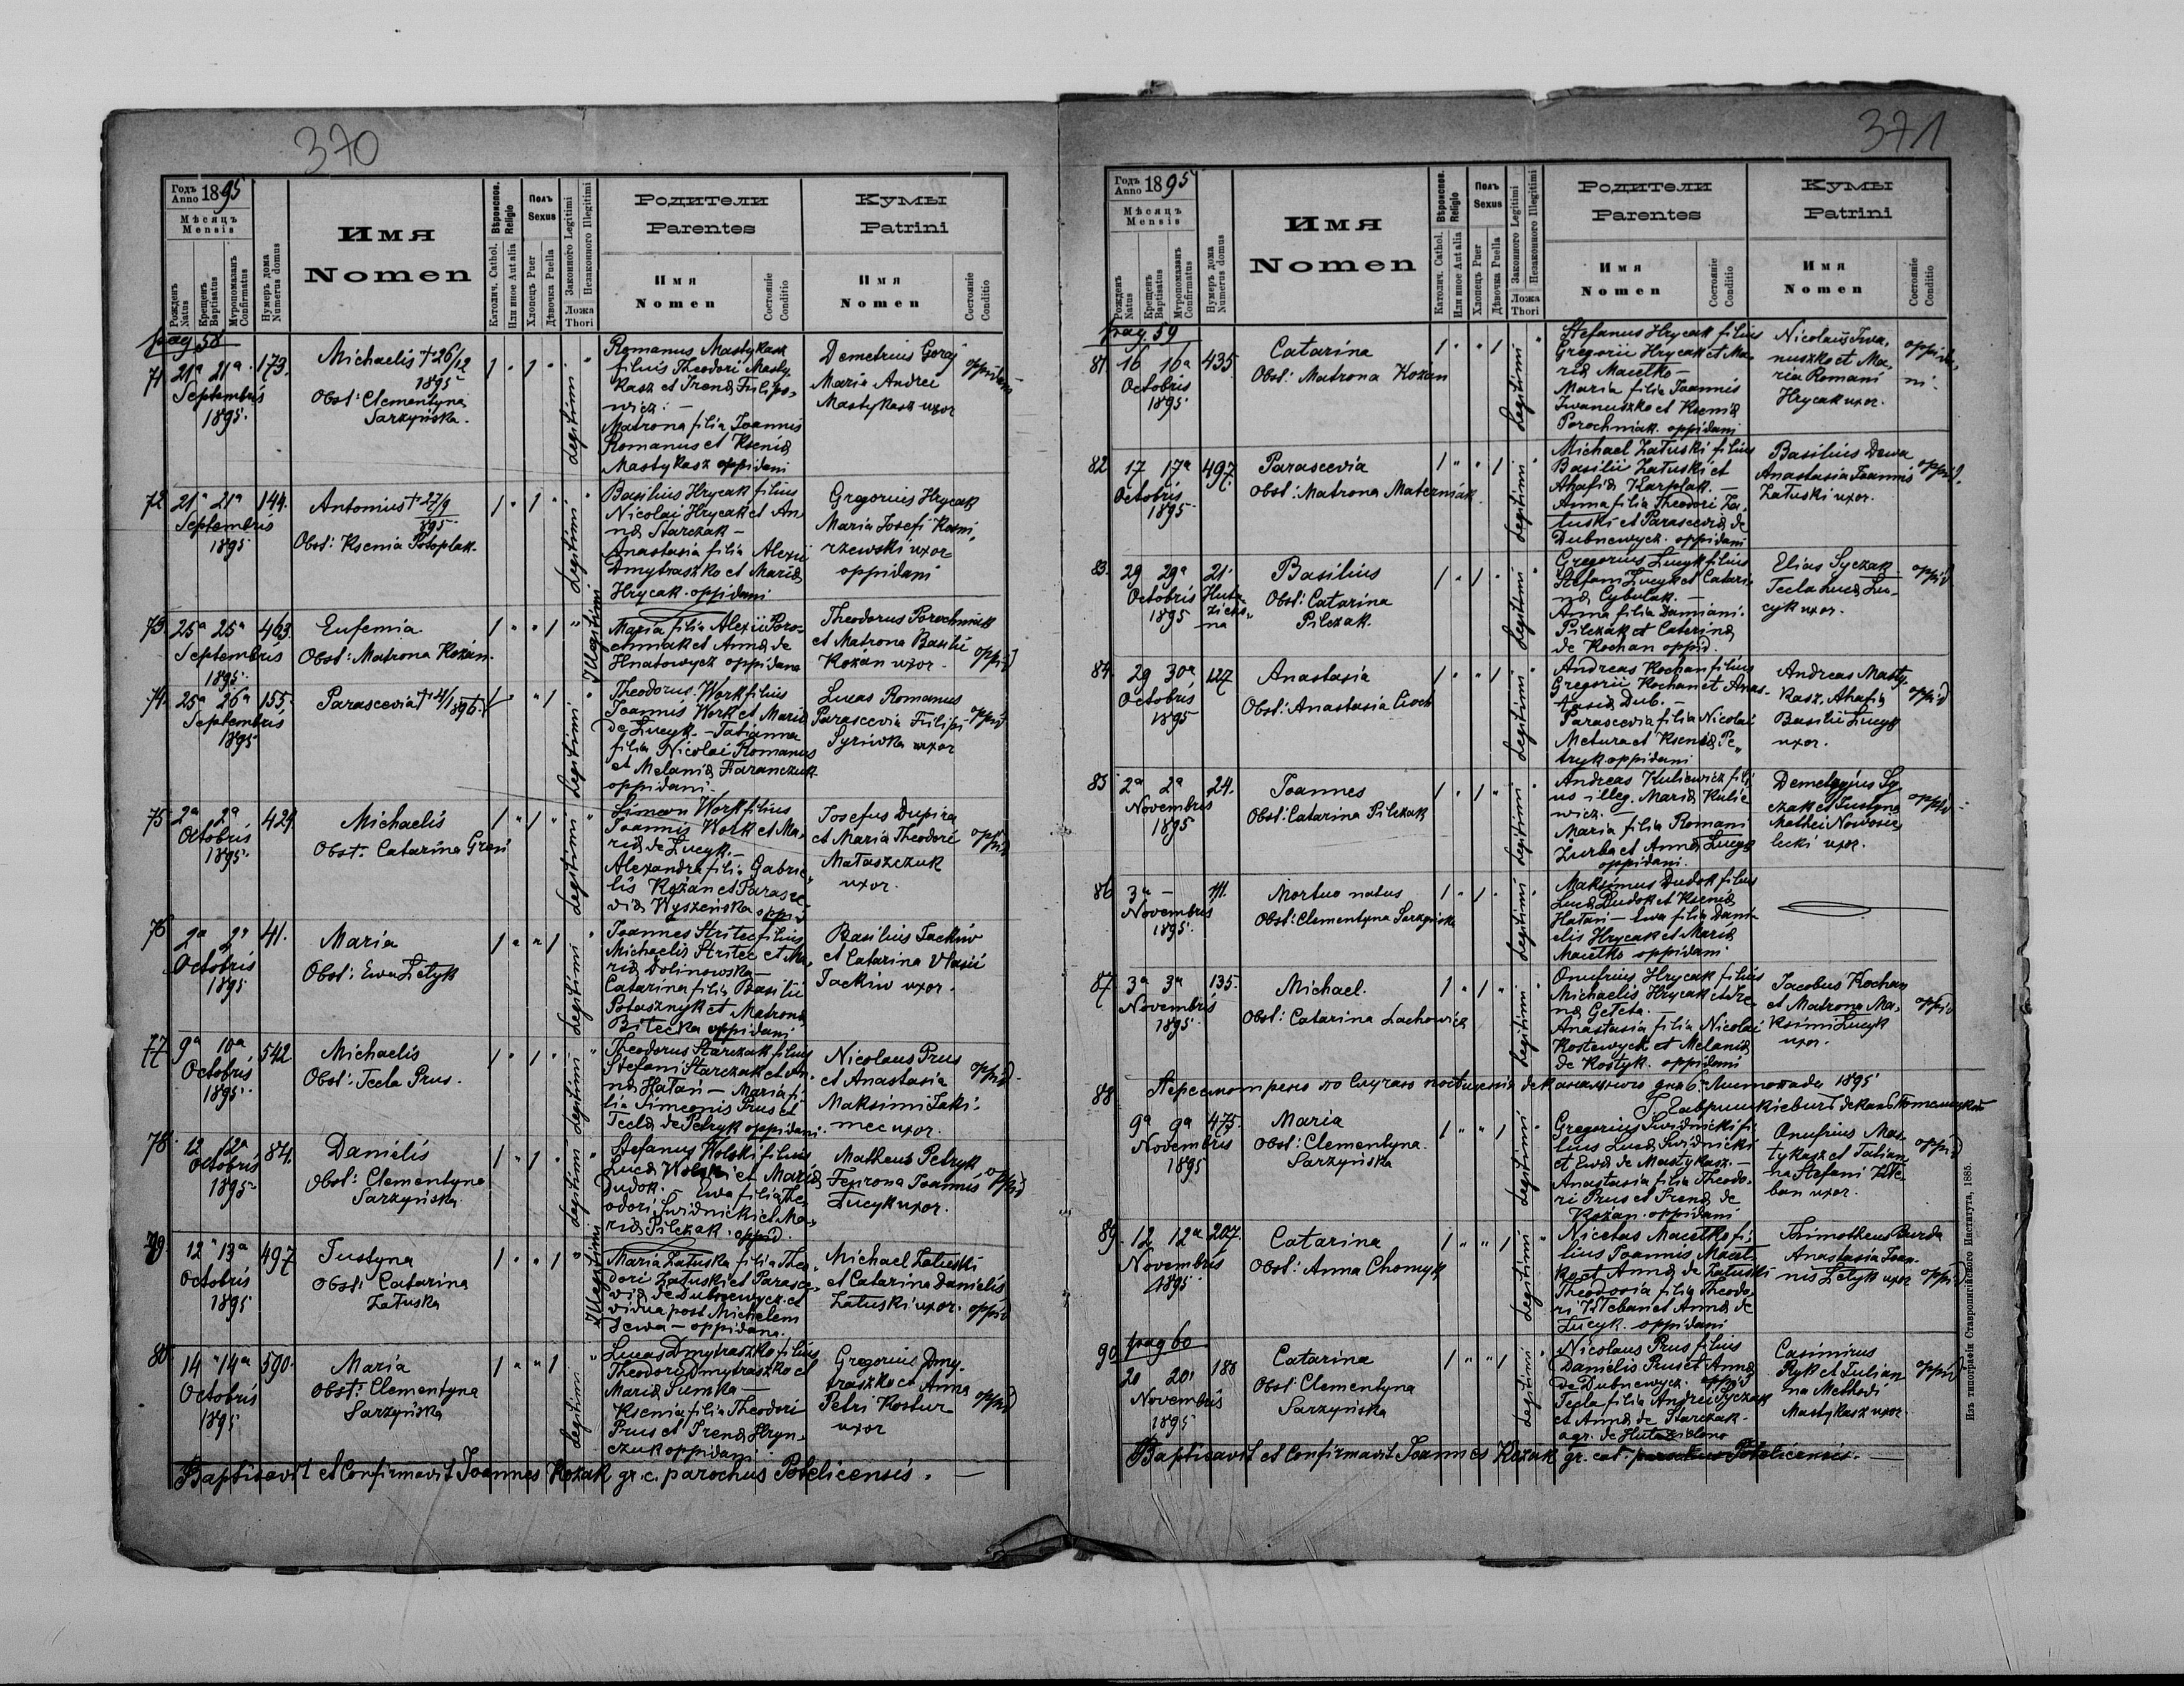 370
Годъ
Anno 1895
Мѣсяцъ
Mensis
Рожденъ
Natus
Крещенъ
Baptisatus
Муропомазанъ
Confirmatus
Нумеръ дома
Numerus domus
Имя
Nomen
Вѣроиспов.
Religio
Католич. Cathol.
Или иное Aut alia
Полъ
Sexus
Хлопецъ Puer
Дѣвочка Puella
Законного Legitimi
Незаконного Illegitimi
Ложа
Thori
Родители
Parentes
Имя
Nomen
Состояніе
Conditio
Кумы
Patrini
Имя
Nomen
Состояніе
Conditio
pag 58
71 21ª 21ª 173.
Septembris
1895.
Michaelis † 26/12
1895
Obst: Clementyna
Sarzyńska.
1 " 1 "
Legitimi
Romanus Mastykasz
filius Theodori Masty
kasz et Irenæ Filipo,
wicz. —
Matrona filia Joannis
Romanus et Kseniæ
Mastykasz oppidani
Demetrius Goraj
Maria Andrei
Mastykasz uxor
oppidani
72 21ª 21ª 144.
Septembris
1895
Antonius † 27/9
895
Obst: Ksenia Potoplak.
1 " 1 "
Legitimi
Basilius Hrycak filius
Nicolai Hrycak et An
næ Starczak —
Anastasia filia Alexii
Dmytraszko et Mariæ
Hrycak. oppidani
Gregorius Hrycak
Maria Josefi Kazmi,
rzewski uxor
oppidani
73 25ª 25ª 463.
Septembris
1895.
Eufemia
Obst: Matrona Kożan.
1 " " 1
Illegitimi
Maria filia Alexii Poro-
chniak et Annæ de
Hnatowycz oppidana
Theodorus Porochniak
et Matrona Basilii
Kożan uxor.
oppid
74. 25ª 26ª 155.
Septembris
1895
Parascevia † 21/1 896.
1 " " 1
Legitimi
Theodorus Work filius
Joannis Work et Mariæ
de Lucyk. — Tatianna
filia Nicolai Romanus
et Melaniæ Faranczuk
oppidani.
Lucas Romanus
Parascevia Filipi
Syriwka uxor
oppid
75 2ª 2ª 424
Octobris
1895.
Michaelis
Obst: Catarina Gresi
1 " 1 "
Legitimi
Simeon Work filius
Joannis Work et Ma,
riæ de Lucyk. —
Alexandra filia Gabrie,
lis Kożan et Parasce,
viæ Wyszeńska oppid
Josefus Dupira
et Maria Theodori
Mataszczuk
uxor.
oppid
76 2ª 2ª 41.
Octobris
1895
Maria
Obst: Ewa Letyk
1 " " 1
Legitimi
Joannes Stritec filius
Michaelis Stritec et Ma,
riæ Dolinowska —
Catarina filia Basilii
Potasznyk et Matronæ
Bilecka oppidani
Basilius Jackiw
et Catarina Vlasii
Jackiw uxor.
77 9ª 10ª 542
Octobris
1895.
Michaelis
Obst: Tecla Prus.
1 " 1 "
Legitimi
Theodorus Starczak filius
Stefani Starczak et An,
næ Hałań — Maria fi,
lia Simeonis Prus et
Teclæ de Petryk oppidani
Nicolaus Prus
et Anastasia
Maksimi Jaki-
mec uxor.
oppid.
78 12 12ª 84.
Octobris
1895
Danielis
Obst: Clementyna
Sarzyńska.
1 " 1 "
Legitimi
Stefanus Wolski filius
Lucæ Wolski et Mariæ
Dudok. Ewa filia The,
odori Swidnicki et Ma,
riæ Pilczak. oppid.
Matheus Petryk
Fewrona Joannis
Lucyk uxor.
oppid
79. 12" 13ª 497
Octobris
1895
Justyna
Obst: Catarina
Załuska
1 " " 1
Illegitimi
Maria Załuska filia Theo,
dori Załuski et Parasce,
viæ de Dubnewycz et
vidua post Michaelem
Dewa — oppidana.
Michael Załuski
et Catarina Danielis
Załuski uxor.
oppid
80 14" 14ª 590.
Octobris
1895
Maria
Obst: Clementyna
Sarzyńska
1 " " 1
Legitimi
Lucas Dmytraszko filius
Theodori Dmytraszko et
Mariæ Sumka —
Ksenia filia Theodori
Prus et Irenæ Hryn-
czuk oppidani
Gregorius Dmy-
traszko et Anna
Petri Kostur
uxor
oppid
Baptisavit et Confirmavit Joannes Kozak gr. c. parochus Potelicensis. —
371
Годъ
Anno 1895
Мѣсяцъ
Mensis
Рожденъ
Natus
Крещенъ
Baptisatus
Муропомазанъ
Confirmatus
Нумеръ дома
Numerus domus
Имя
Nomen
Вѣроиспов.
Religio
Католич. Cathol.
Или иное Aut alia
Полъ
Sexus
Хлопецъ Puer
Дѣвочка Puella
Законного Legitimi
Незаконного Illegitimi
Ложа
Thori
Родители
Parentes
Имя
Nomen
Состояніе
Conditio
Кумы
Patrini
Имя
Nomen
Состояніе
Conditio
pag. 59
81 16 16ª 435
Octobris
1895
Catarina
Obst: Matrona Kożan
1 " " 1
Legitimi
Stefanus Hrycak filius
Gregorii Hrycak et Ma-
riæ Maćełko —
Maria filia Joannis
Iwanuszko et Kseniæ
Porochniak. oppidani
Nicolaus Iwa,
nuszko et Ma,
ria Romani
Hrycak uxor.
oppida,
ni.
82 17 17ª 497.
Octobris
1895
Parascevia
Obst: Matrona Materniak
1 " " 1
Legitimi
Michael Załuski filius
Basilii Załuski et
Ahafiæ Karplak. —
Anna filia Theodori Za,
łuski et Parasceviæ de
Dubnewycz. oppidani
Basilius Dewa
Anastasia Joannis
Załuski uxor.
oppid.
83. 29 29ª 21.
Octobris Huta
1895 zielo,
na
Basilius
Obst: Catarina
Pilczak.
1 " 1 "
Legitimi
Gregorius Lucyk filius
Stefani Lucyk et Catari-
næ Cybulak. —
Anna filia Damiani
Pilczak et Caterinæ
de Kochan oppid.
Elias Syczak
Tecla Lucæ Lu-
cyk uxor.
oppid
84 29 30ª 127
Octobris
1895
Anastasia
Obst: Anastasia Cioch
1 " " 1
Legitimi
Andreas Kochan filius
Gregorii Kochan et Anas-
tasiæ Dub. —
Parascevia filia Nicolai
Metura et Kseniæ Pe,
tryk oppidani
Andreas Masty-
kasz, Ahafia
Basilii Lucyk
uxor.
oppid
85 2ª 2ª 24.
Novembris
1895
Joannes
Obst: Catarina Pilczak
1 " 1 "
Legitimi
Andreas Kuliewicz fili
us illeg. Mariæ Kulie
wicz. —
Maria filia Romani
Żurba et Annæ Lucyk
oppidani.
Demetryus Sy,
czak et Justyna
Mathei Nowosie,
lecki uxor.
oppid
86 3ª — 111.
Novembris
1895.
Mortuo natus
Obst: Clementyna Sarzyńska
1 " 1 "
Legitimi
Maksimus Dudok filius
Lucæ Dudok et Kseniæ
Hałań — Ewa filia Dani
elis Hrycak et Mariæ
Maćełko oppidani
87 3ª 3ª 135.
Novembris
1895.
Michael.
Obst: Catarina Lachowicz
1 " 1 "
Legitimi
Onufrius Hrycak filius
Michaelis Hrycak et Ire
næ Gełeta. —
Anastasia filia Nicolai
Kostewycz et Melaniæ
de Kostyk. oppidani
Jacobus Kochan
et Matrona Ma,
ksimi Lucyk
uxor.
oppid
Пересмотрено по случаю посѣщенія деканального дня 6. Листопада 1895
88 9ª 9ª 475.
Novembris
1895
Maria
Obst: Clementyna
Sarzyńska
1 " " 1
Legitimi
Gregorius Swidnicki fi
lius Lucæ Swidnicki
et Ewæ de Mastykasz. —
Anastasia filia Theodo-
ri Prus et Irenæ de
Kożan. oppidani
Onufrius Mas-
tykasz et Tatian
na Stefani
uxor.
oppid
89. 12 12ª 207.
Novembris
1895
Catarina
Obst: Anna Chomyk
1 " " 1
Legitimi
Nicetas Maćełko fi-
lius Joannis Maćeł-
ko et Annæ de Załuski
Theodosia filia Theodo-
ri et Annæ de
Lucyk. oppidani
Thimotheus Burda
Anastasia Joan-
nis Letyk uxor
oppid
pag 60
90 20 20ª 188
Novembris
1895
Catarina
Obst: Clementyna
Sarzyńska
1 " " 1
Legitimi
Nicolaus Prus filius
Danielis Prus et Annæ
de Dubnewycz. oppid
Tecla filia Andrei Syczak
et Annæ de Starczak.
agr. de Huta zielona
Casimirus
Ryk et Julian
na Methodi
Mastykasz uxor
oppid
Baptisavit et Confirmavit Joannes Kozak gr. cat. parochus Potelicensis. —
Изъ типографіи Ставропигійского Института, 1885.